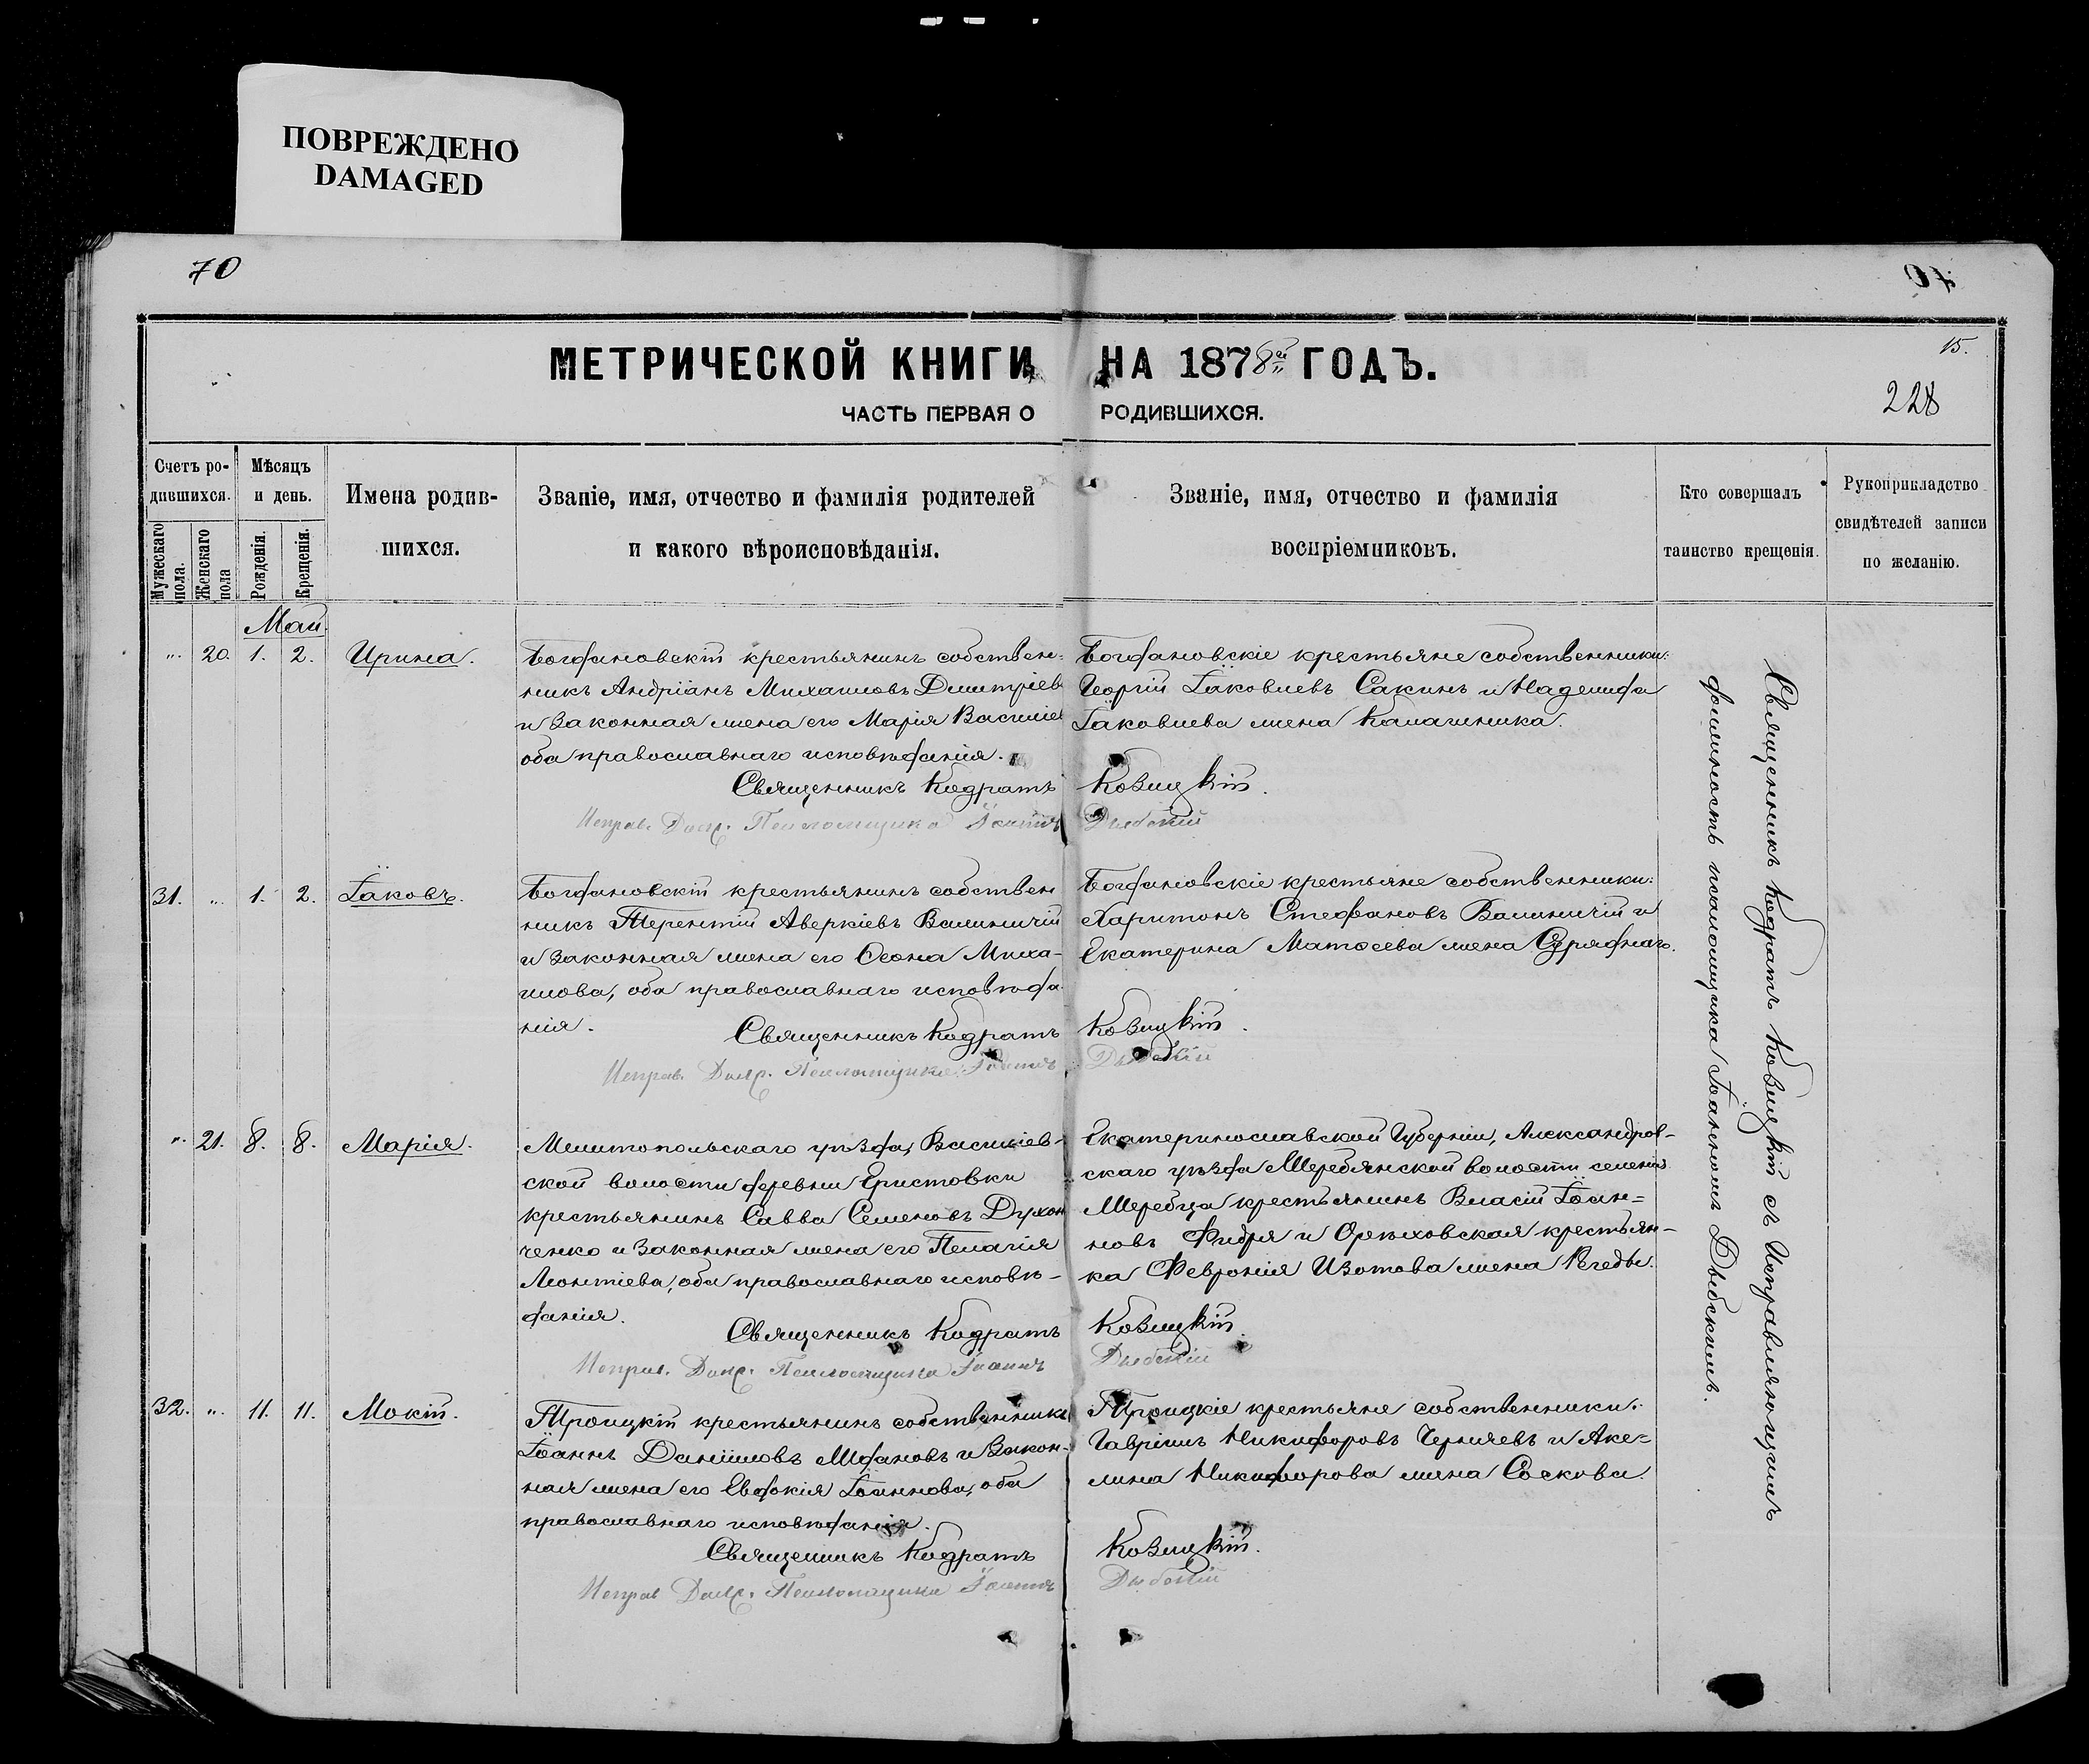 ПОВРЕЖДЕНО
DAMAGED
70
МЕТРИЧЕСКОЙ КНИГИ НА 1878й ГОДЪ.
ЧАСТЬ ПЕРВАЯ О РОДИВШИХСЯ.
15.
228
Счетъ родившихся.
Мужескаго пола.
Женскаго пола
Мѣсяцъ и день.
Рожденія.
Крещенія.
Имена родив-
шихся.
Званіе, имя, отчество и фамилія родителей
и какого вѣроисповѣданія.
Званіе, имя, отчество и фамилія
воспріемниковъ.
Кто совершалъ
таинство крещенія.
Рукоприкладство
свидѣтелей записи
по желанію.
Май.
„ 20. 1. 2. Ирина.
Богдановскій крестьянинъ собствен-
никъ Андріанъ Михаиловъ Дмитріев
и законная жена его Марія Василіев
оба православнаго исповѣданія.
Священникъ Кодратъ
Исправ. Долж. Псаломщика Іоаннъ
Богдановскіе крестьяне собственники:
Георгій Іаковлевъ Сакинъ и Надежда
Іаковлева жена Калашника.
Козицкій.
Дыбскій
31. „ 1. 2. Іаковъ.
Богдановскій крестьянинъ собствен
никъ Терентій Аверкіевъ Калиничій
и законная жена его Ѳеона Миха-
илова, оба православнаго исповѣда
нія. Священникъ Кодратъ
Исправ. Долж. Псаломщика Іоаннъ
Богдановскіе крестьяне собственники:
Харитонъ Стефановъ Калиничій и
Екатерина Матѳеева жена
Козицкій.
Дыбскій
„ 21. 8. 8. Марія.
Мелитопольскаго уѣзда, Василіев-
ской волости деревни Еристовки
крестьянинъ Савва Семеновъ Духон
ченко и законная жена его Пелагія
Леонтіева, оба православнаго исповѣ-
данія.
Священникъ Кодратъ
Исправ. Долж. Псаломщика Іоаннъ
Екатеринославской Губерніи, Александров-
скаго уѣзда Жеребянской волости селенія
Жеребца крестьянинъ Власій Іоан-
новъ Фидря и Орѣховская крестьян-
ка Февронія Изотова жена
Козицкій.
Дыбскій
32. „ 11. 11. Мокій.
Троицкій крестьянинъ собственникъ
Іоаннъ Даніиловъ Ждановъ и закон-
ная жена его Евдокія Іоаннова, оба
православнаго исповѣданія.
Священникъ Кодратъ
Исправ Долж. Псаломщика Іоаннъ
Троицкіе крестьяне собственники:
Гавріилъ Никифоровъ Черняевъ и Аке-
лина Никифорова жена Соскова.
Козицкій.
Дыбскій
Священникъ Кодратъ Козицкій съ Исправляющимъ
должность псаломщика Іоанномъ Дыбскимъ.